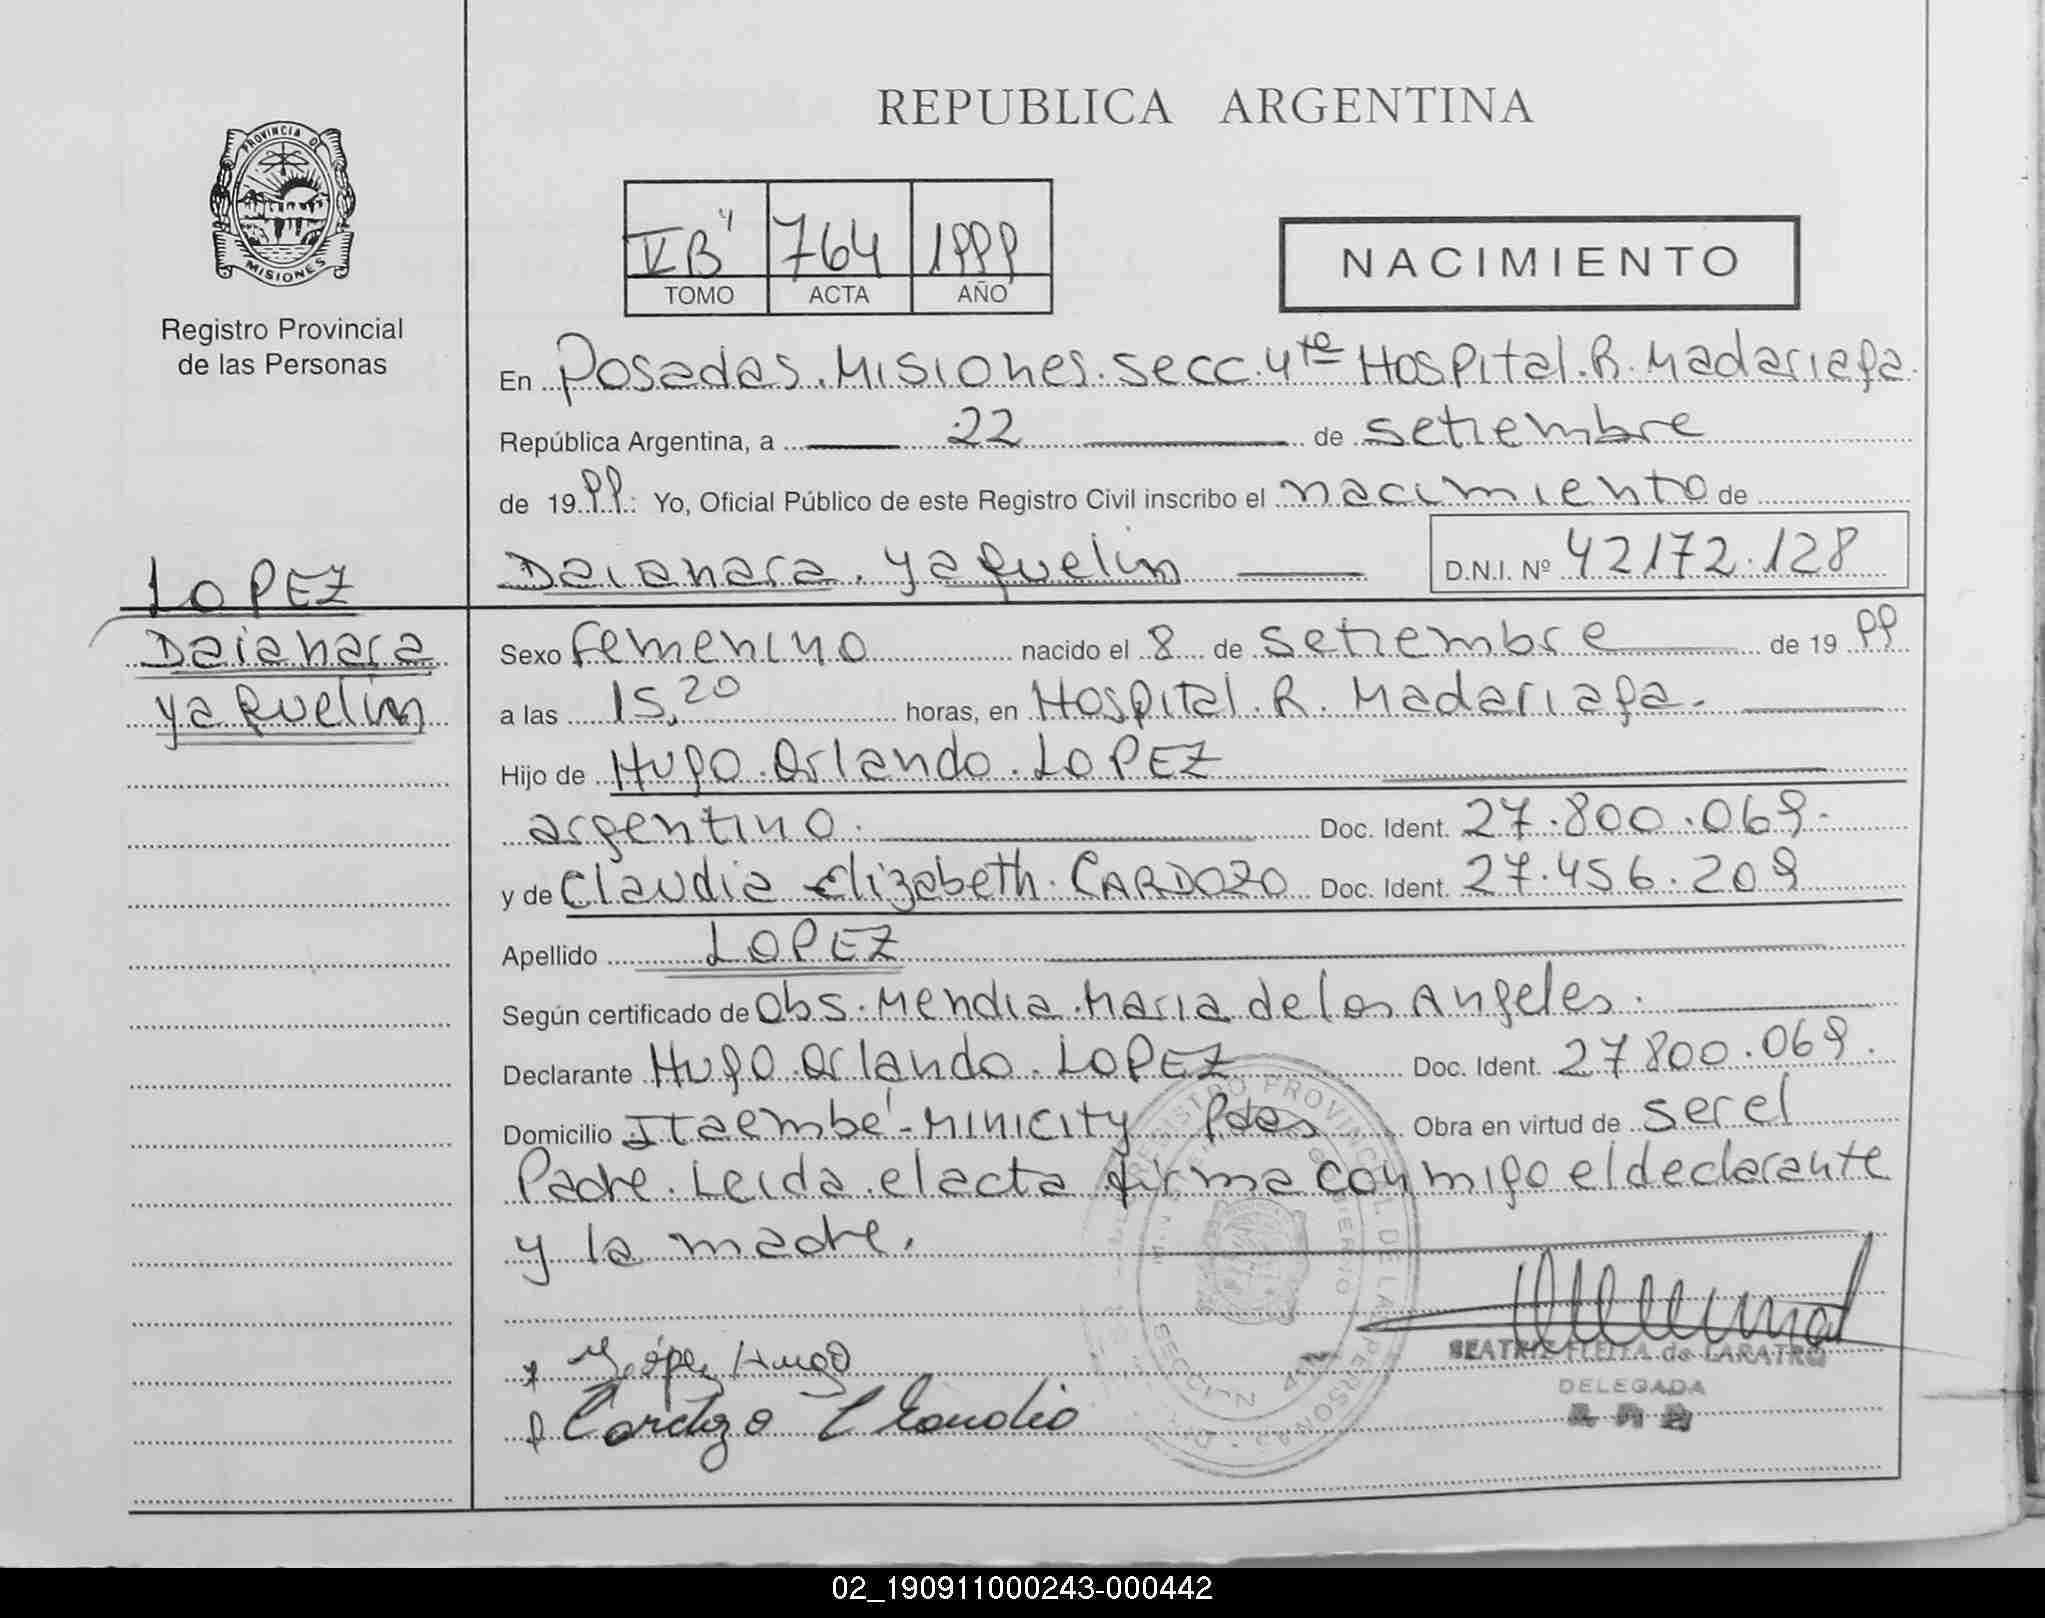 REPUBLICA ARGENTINA
PROVINCIA DE
MISIONES
Registro Provincial
de las Personas
VB" 764 1999
TOMO ACTA AÑO
NACIMIENTO
En Posadas. Misiones. secc. 4ta Hospital. R. Madariaga.
República Argentina, a 22 de setiembre
de 1999. Yo, Oficial Público de este Registro Civil inscribo el nacimiento de
Daianara. yaquelin D.N.I. Nº 42172.128
LOPEZ
Daianara
yaquelin
Sexo femenino nacido el 8 de setiembre de 1999
a las 15,20 horas, en Hospital. R. Madariaga.
Hijo de Hugo. Orlando. LOPEZ
argentino. Doc. Ident. 27.800.069.
y de Claudia Elizabeth. CARDOZO Doc. Ident. 27.456.209
Apellido LOPEZ
Según certificado de Obs. Mendia. Maria de los Angeles.
Declarante Hugo. Orlando. LOPEZ Doc. Ident. 27800.069.
Domicilio Itaembé-Minicity Pdas Obra en virtud de ser el
Padre. Leida. el acta firma conmigo el declarante
y la madre.
REGISTRO PROVINCIAL DE LAS PERSONAS
López Hugo
Cardozo Claudia
BEATRIZ FLEITA de LARATRO
DELEGADA
02_190911000243-000442